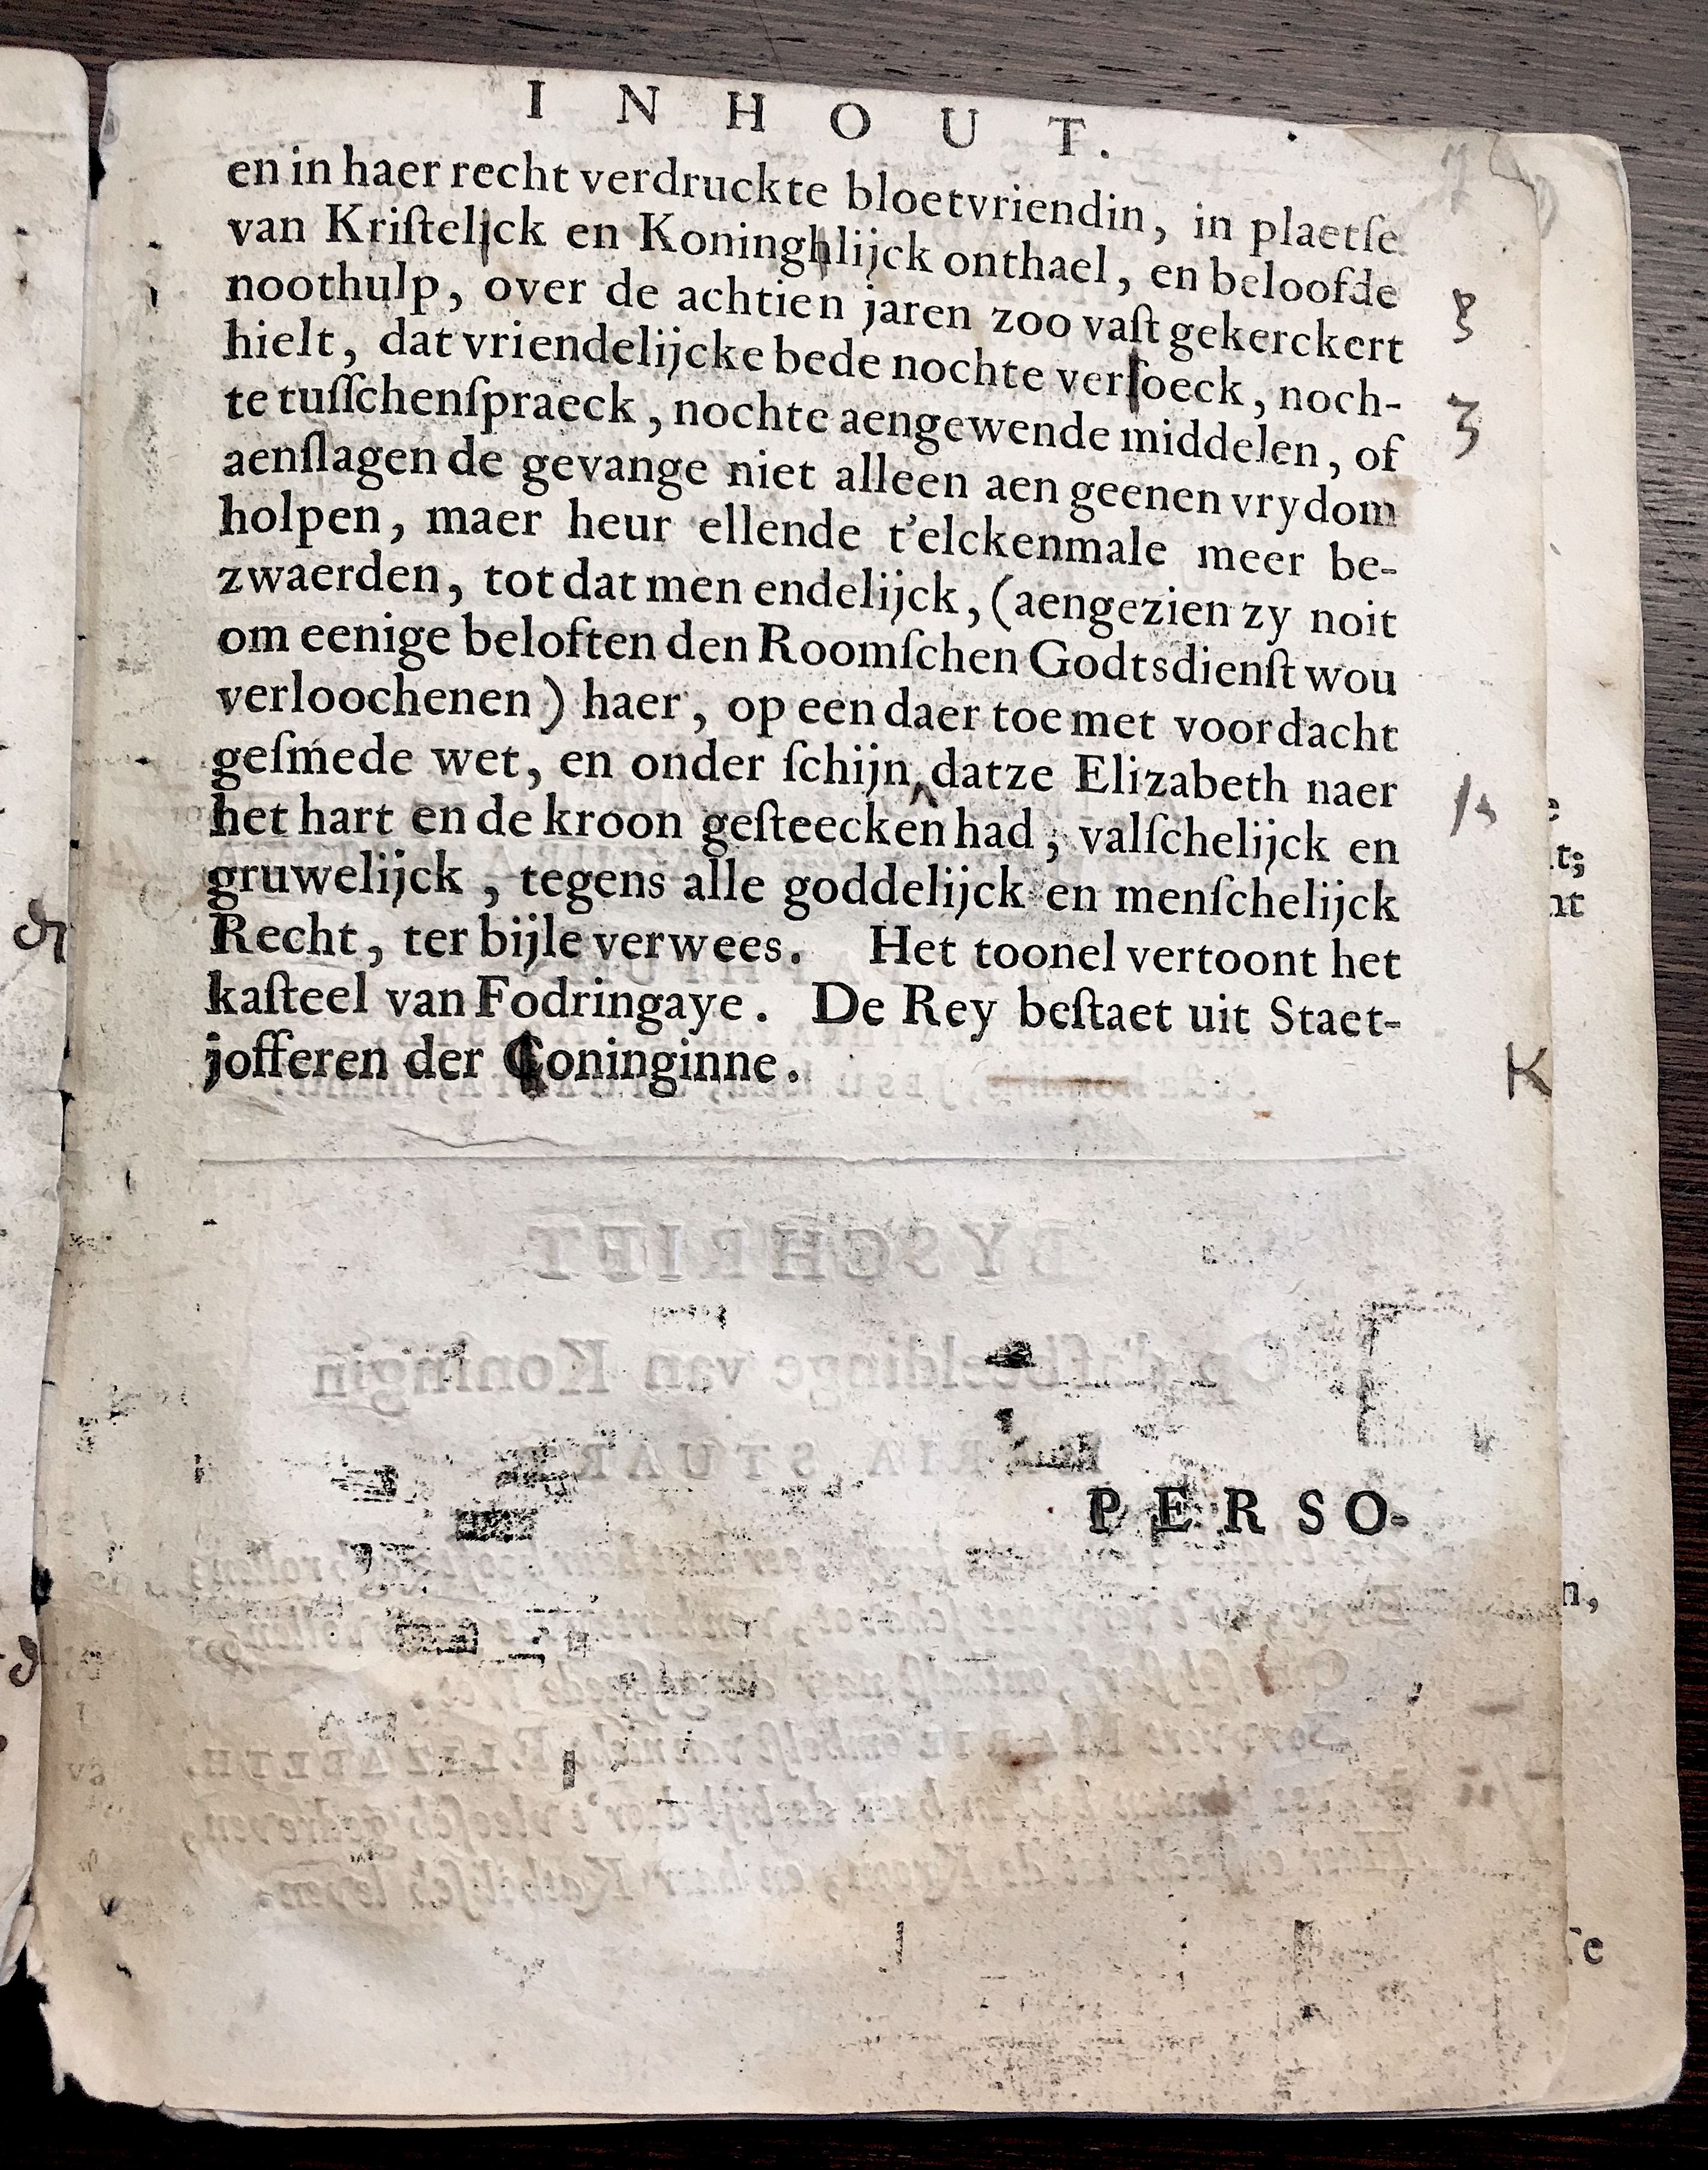 INHOUT.
en in haer recht verdruckte bloetvriendin, in plaetſe
van Kriſtelijck en Koninghlijck onthael, en beloofde
noothulp, over de achtien jaren zoo vaſt gekerckert
hielt, dat vriendelijcke bede nochte verſoeck, noch-
te tuſſchenſpraeck, nochte aengewende middelen, of
aenſlagen de gevange niet alleen aen geenen vrydom
holpen, maer heur ellende t'elckenmale meer be-
zwaerden, tot dat men endelijck, (aengezien zy noit
om eenige beloften den Roomſchen Godtsdienſt wou
verloochenen) haer, op een daer toe met voordacht
geſmede wet, en onder ſchijn datze Elizabeth naer
het hart en de kroon geſteecken had, valſchelijck en
gruwelijck, tegens alle goddelijck en menſchelijck
Recht, ter bijle verwees. Het toonel vertoont het
kaſteel van Fodringaye. De Rey beſtaet uit Staet-
jofferen der Coninginne.
K
PERSO-